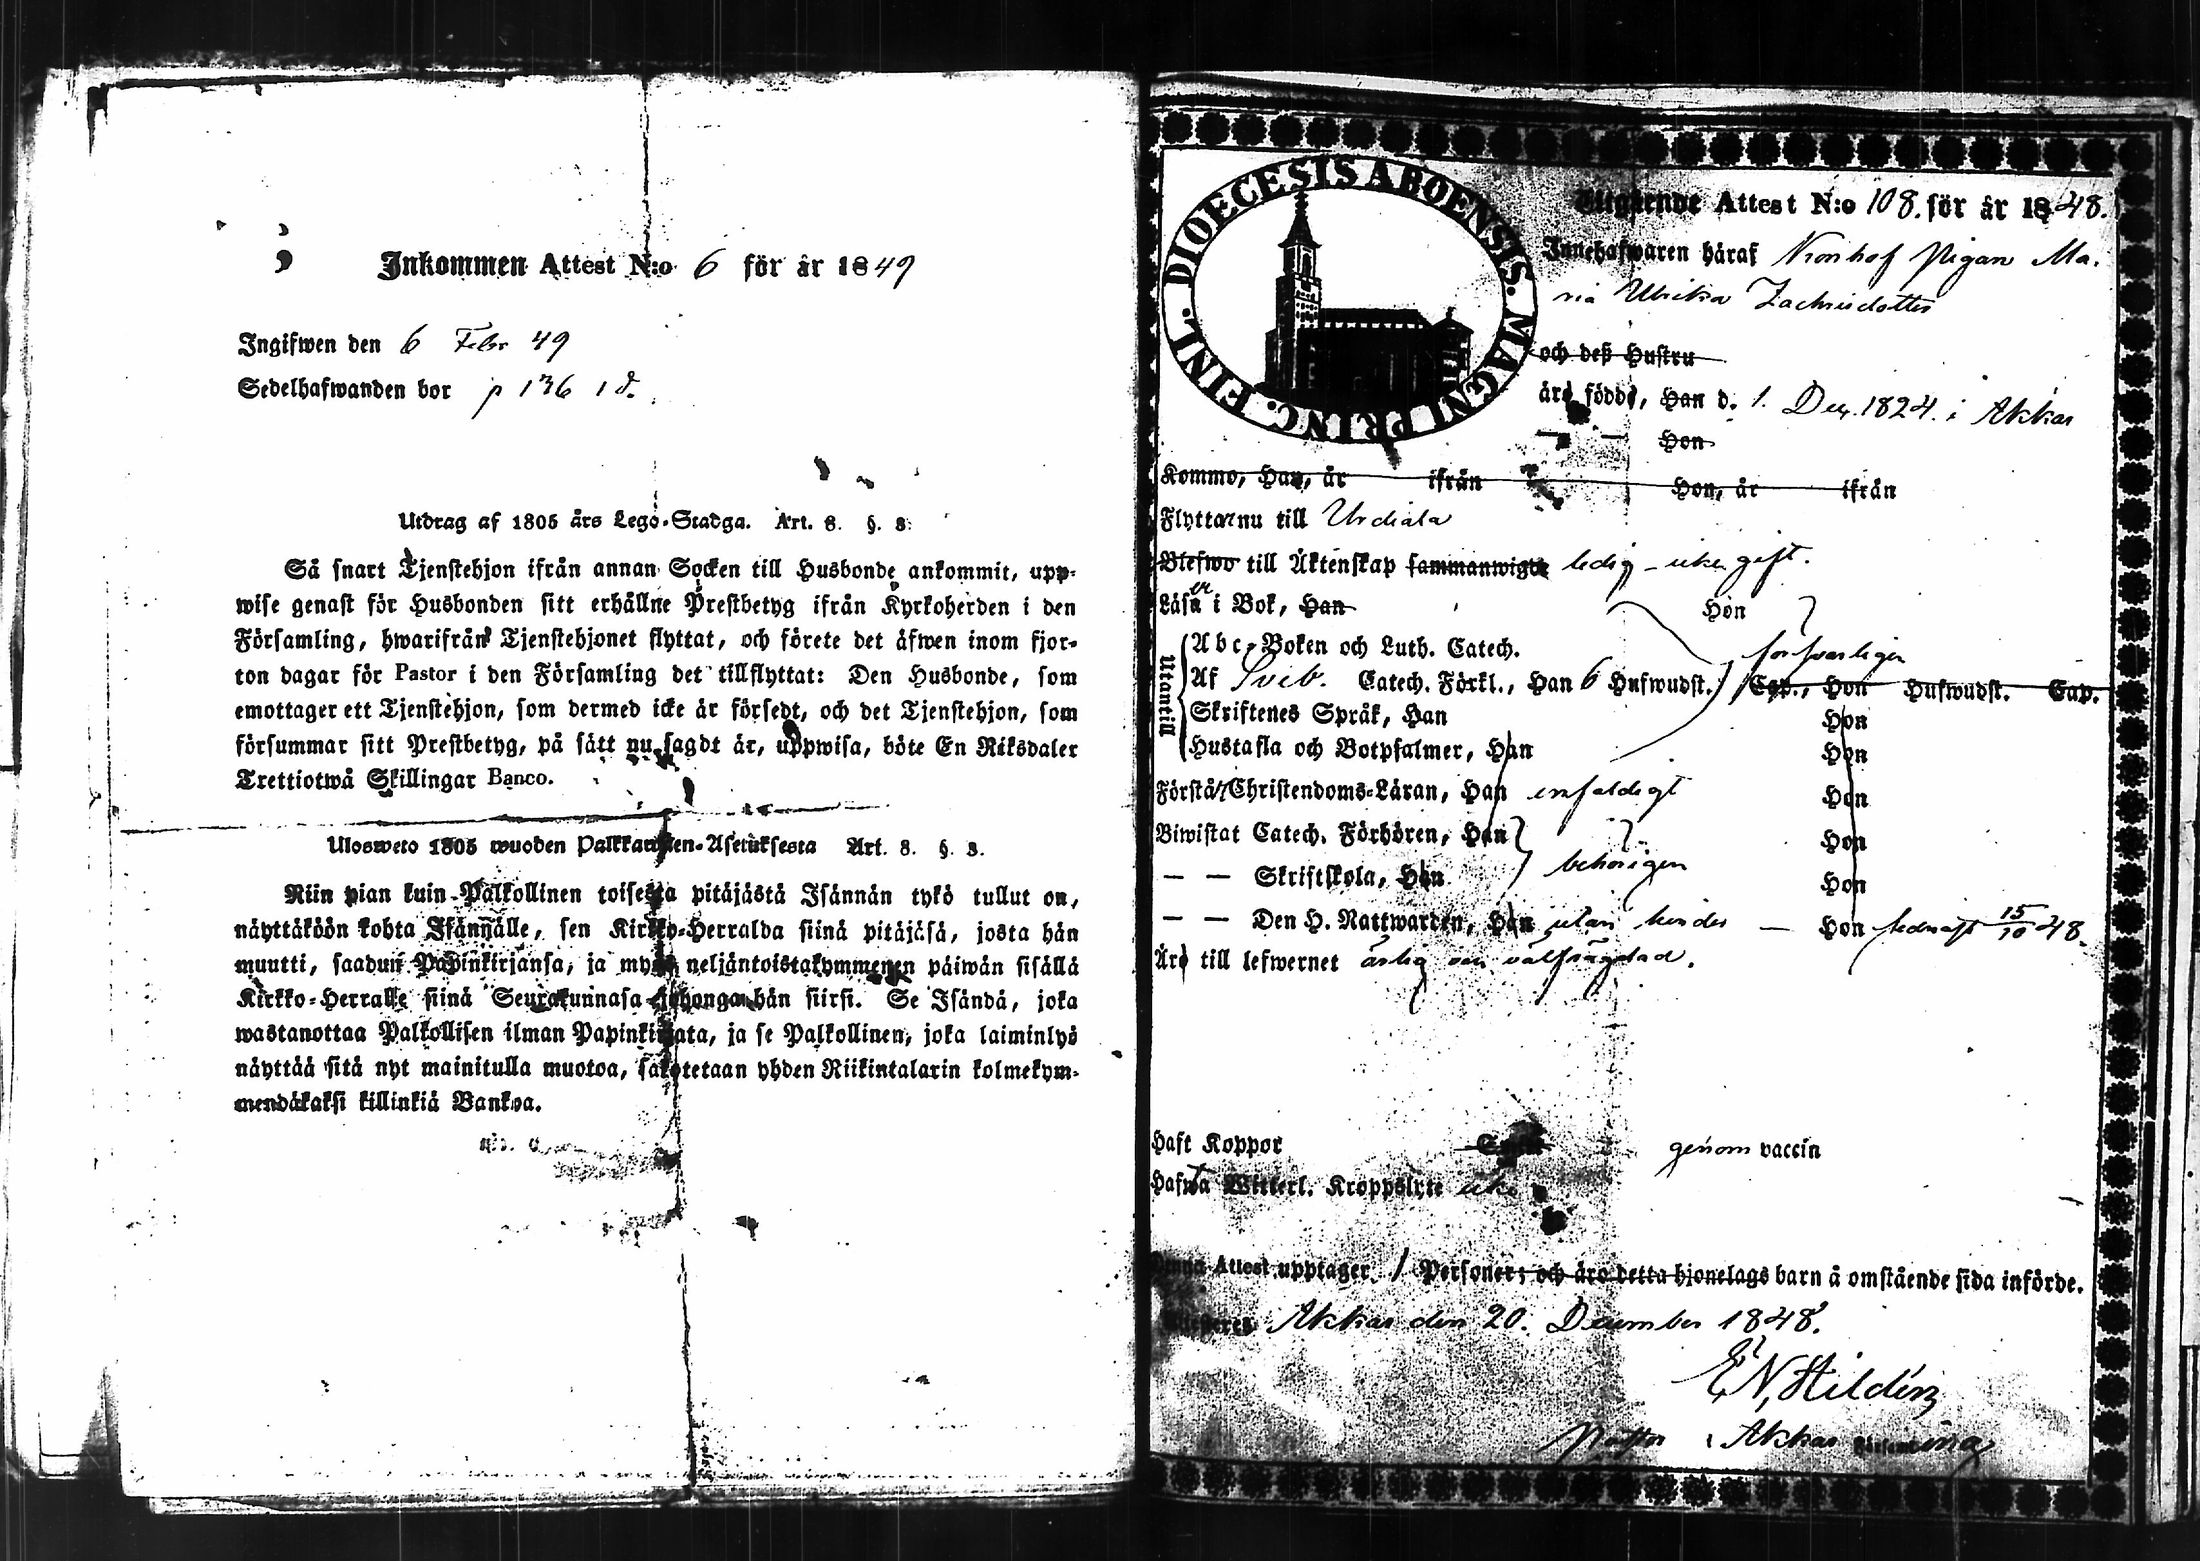 Inkommen Attest N:o 6 för år 1849
Ingifwen den 6 Febr 49
Sedelhafwanden bor p 136 1 d.
Utdrag af 1805 års Lego-Stadga. Art. 8. §. 3.
Så snart Tjenstehjon ifrån annan Socken till Husbonde ankommit, upp-
wise genast för Husbonden sitt erhållne Prestbetyg ifrån Kyrkoherden i den
Församling, hwarifrån Tjenstehjonet flyttat, och förete det äfwen inom fjor-
ton dagar för Pastor i den Församling det tillflyttat: Den Husbonde, som
emottager ett Tjenstehjon, som dermed icke är försedt, och det Tjenstehjon, som
försummar sitt Prestbetyg, på sätt nu sagdt är, uppwisa, böte En Riksdaler
Trettiotwå Skillingar Banco.
Ulosweto 1805 wuoden Palkkausten-Asetuksesta Art. 8. §. 3.
Niin pian kuin Palkollinen toisesta pitäjästä Isännän tykö tullut on,
näyttäköön kohta Isännälle, sen Kirkko-Herralda siinä pitäjäsä, josta hän
muutti, saadun Papinkirjansa, ja myös neljäntoistakymmenen päiwän sisällä
Kirkko-Herralle siinä Seurakunnasa johonga hän siirsi. Se Isändä, joka
wastanottaa Palkollisen ilman Papinkirjata, ja se Palkollinen, joka laiminlyö
näyttää sitä nyt mainitulla muotoa, sakotetaan yhden Riikintalarin kolmekym-
mendäkaksi killinkiä Bankoa.
DIOECESIS ABOENSIS. MAGNI PRINC. FINL.
Utgående Attest N:o 108. för år 1848.
Innehafwaren häraf Kronhof Pigan Ma-
ria Ulrika Zachrisdotter
och deß Hustru
äro födde, Han d. 1. Dec. 1824. i Akkas
Hon
Kommo, Han, år ifrån Hon, år ifrån
Flytta nu till Urdiala
Blefwo till Äktenskap sammanwigde ledig - icke gift.
Läser i Bok, Han Hon
Utantill
Abc-Boken och Luth. Catech. försvarligen
Af Sveb. Catech. Förkl., Han 6 Hufwudst. Cap., Hon Hufwudst. Cap.
Skriftenes Språk, Han Hon
Hustafla och Botpsalmer, Han Hon
Förstå Christendoms-Läran, Han enfaldigt Hon
Biwistat Catech. Förhören, Han Hon
behörigen
— — Skriftskola, Han Hon
— — Den H. Nattwarden, Han utan hinder — Hon sednast 15/10 48.
Äro till lefwernet ärlig och välfrägdad.
Haft Koppor genom vaccin
Hafwa Witterl. Kroppslyte icke
Denna Attest upptager 1 Personer; och äro detta hjonelags barn å omstående sida införde.
Akkas den 20. December 1848.
E N, Hildén
Pastor i Akkas